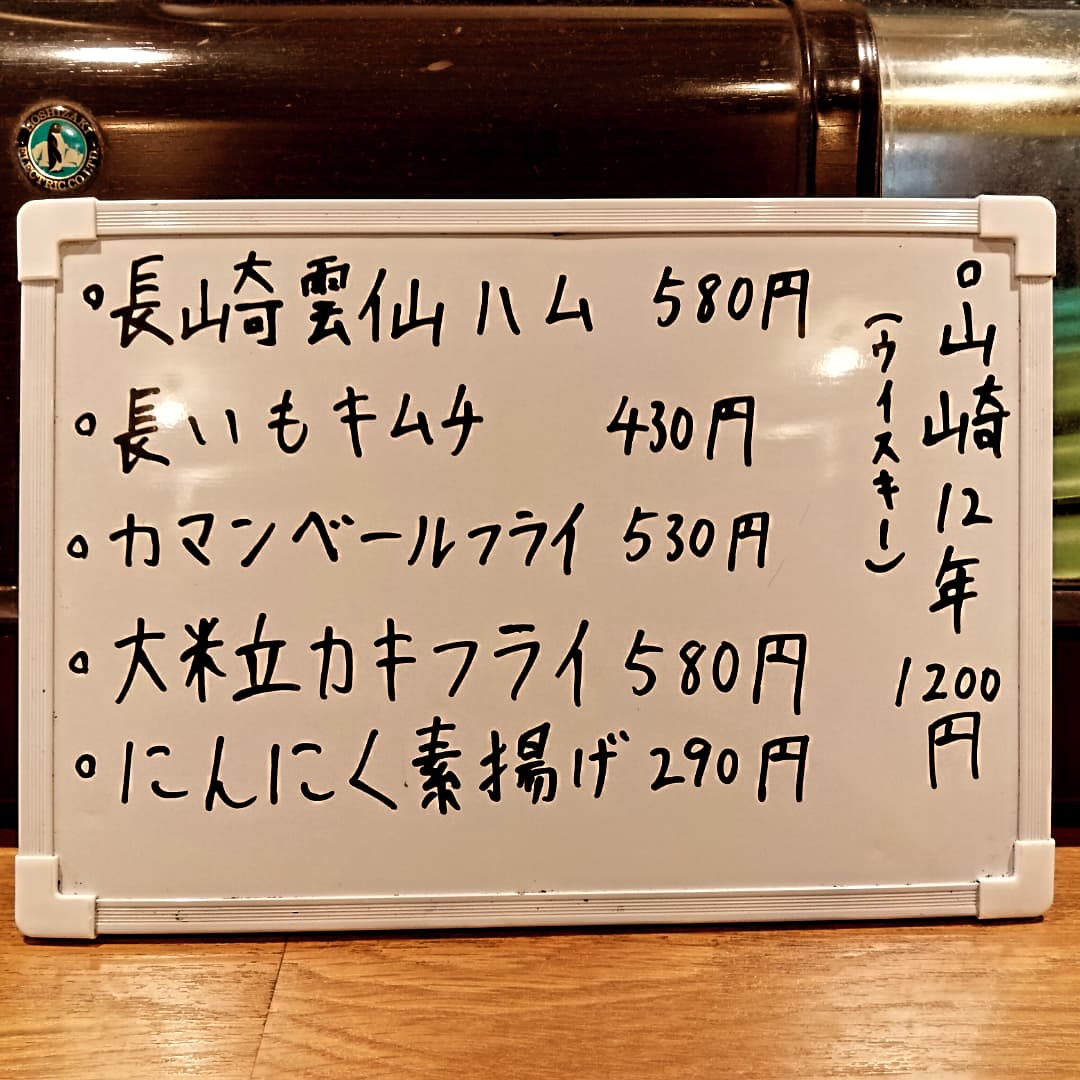 HOSHIZAKI
ELECTRIC CO.LTD
長崎雲仙ハム 580円
長いもキムチ 430円
カマンベールフライ 530円
大粒カキフライ 580円
にんにく素揚げ 290円
山崎12年 1200円
(ウイスキー)